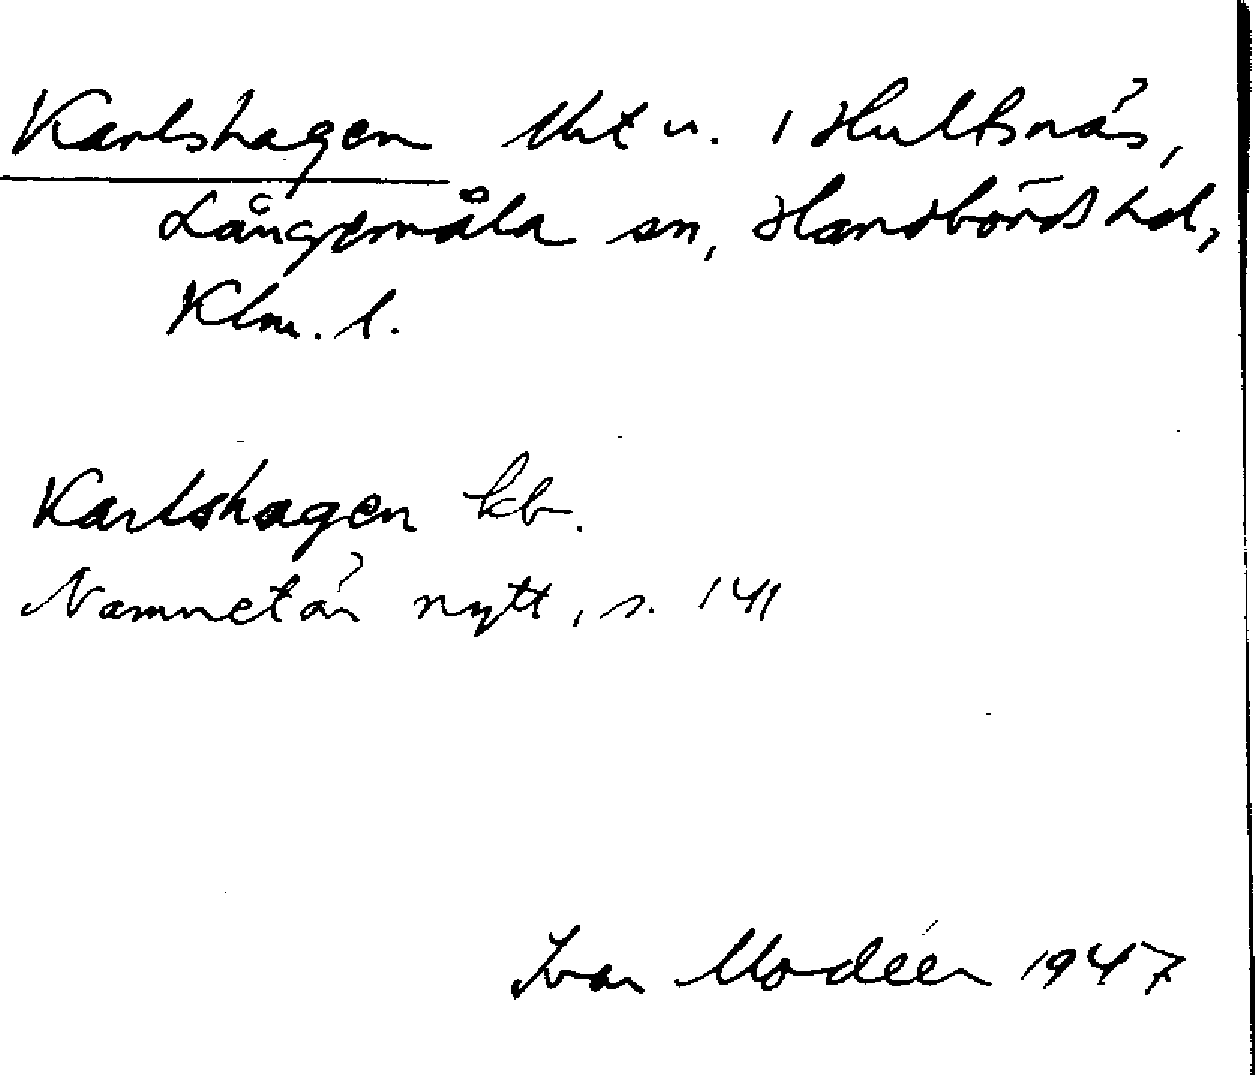 Karlshagen tkt u. i Hultsnäs,
Långemåla sn, Handbörds hd,
Klm. l.
Karlshagen kb.
Namnet är nytt, s. 141
Ivar Modéer 1947